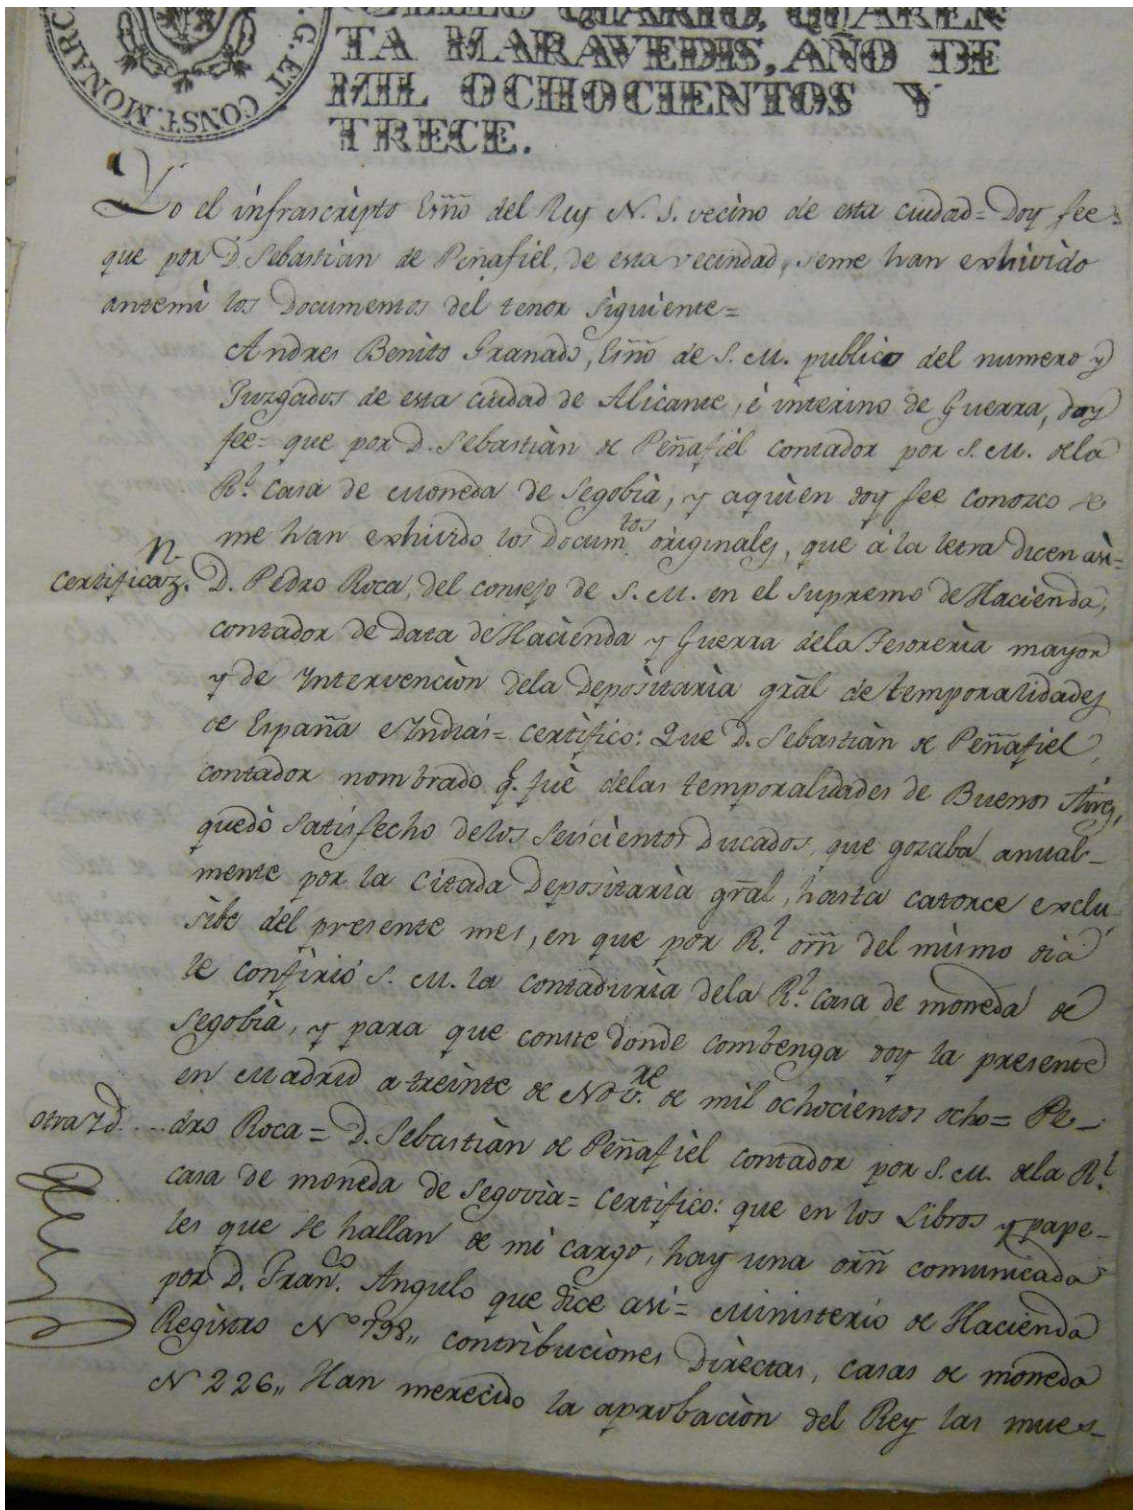 G. ET CONST. MONARC
SELLO QUARTO, QUAREN
TA MARAVEDIS, AÑO DE
MIL OCHOCIENTOS Y
TRECE.
Yo el infrascripto Esño del Rey N. S. vecino de esta ciudad = Doy fee =
que por D. Sebastian de Peñafiel, de esta vecindad, seme han exhivido
antemi los Documentos del tenor siguiente =
Andres Benito Granado, Esño de S. M. publico del numero y
Juzgados de esta ciudad de Alicante, é interino de Guerra, doy
fee = que por D. Sebastian de Peñafiel contador por S. M. dela
Rl. Casa de Moneda de Segobia, y aquien doy fee conozco se
me han exhivido los Docum.tos originales, que á la letra dicen asi =
Certificazn. D. Pedro Roca, del consejo de S. M. en el Supremo de Hacienda,
contador de Data de Hacienda y Guerra dela Tesoreria mayor
y de Yntervencion dela Depositaria gral de temporalidades
de España e Yndias = certifico: Que D. Sebastian de Peñafiel,
contador nombrado q.e fué delas temporalidades de Buenos Aires,
quedó satisfecho delos seiscientos Ducados, que gozaba anual-
mente por la citada Depositaria gral, hasta catorce exclu
sibe del presente mes, en que por Rl. orñ del mismo dia
le confirió S. M. la contaduria dela Rl. Casa de moneda de
Segobia, y para que conste donde combenga doy la presente
en Madrid a treinte de Nov.re de mil ochocientos ocho = Pe-
otra yd. ... dro Roca = D. Sebastian de Peñafiel contador por S. M. dela Rl.
casa de moneda de Segovia = Certifico: que en los Libros y pape-
les que se hallan de mi cargo, hay una orñ comunicada
por D. Fran.co Angulo que dice asi = Ministerio de Hacienda
Registro Nº 798,, contribuciones Directas, casas de moneda
N 226,, Han merecido la aprobacion del Rey las mues-